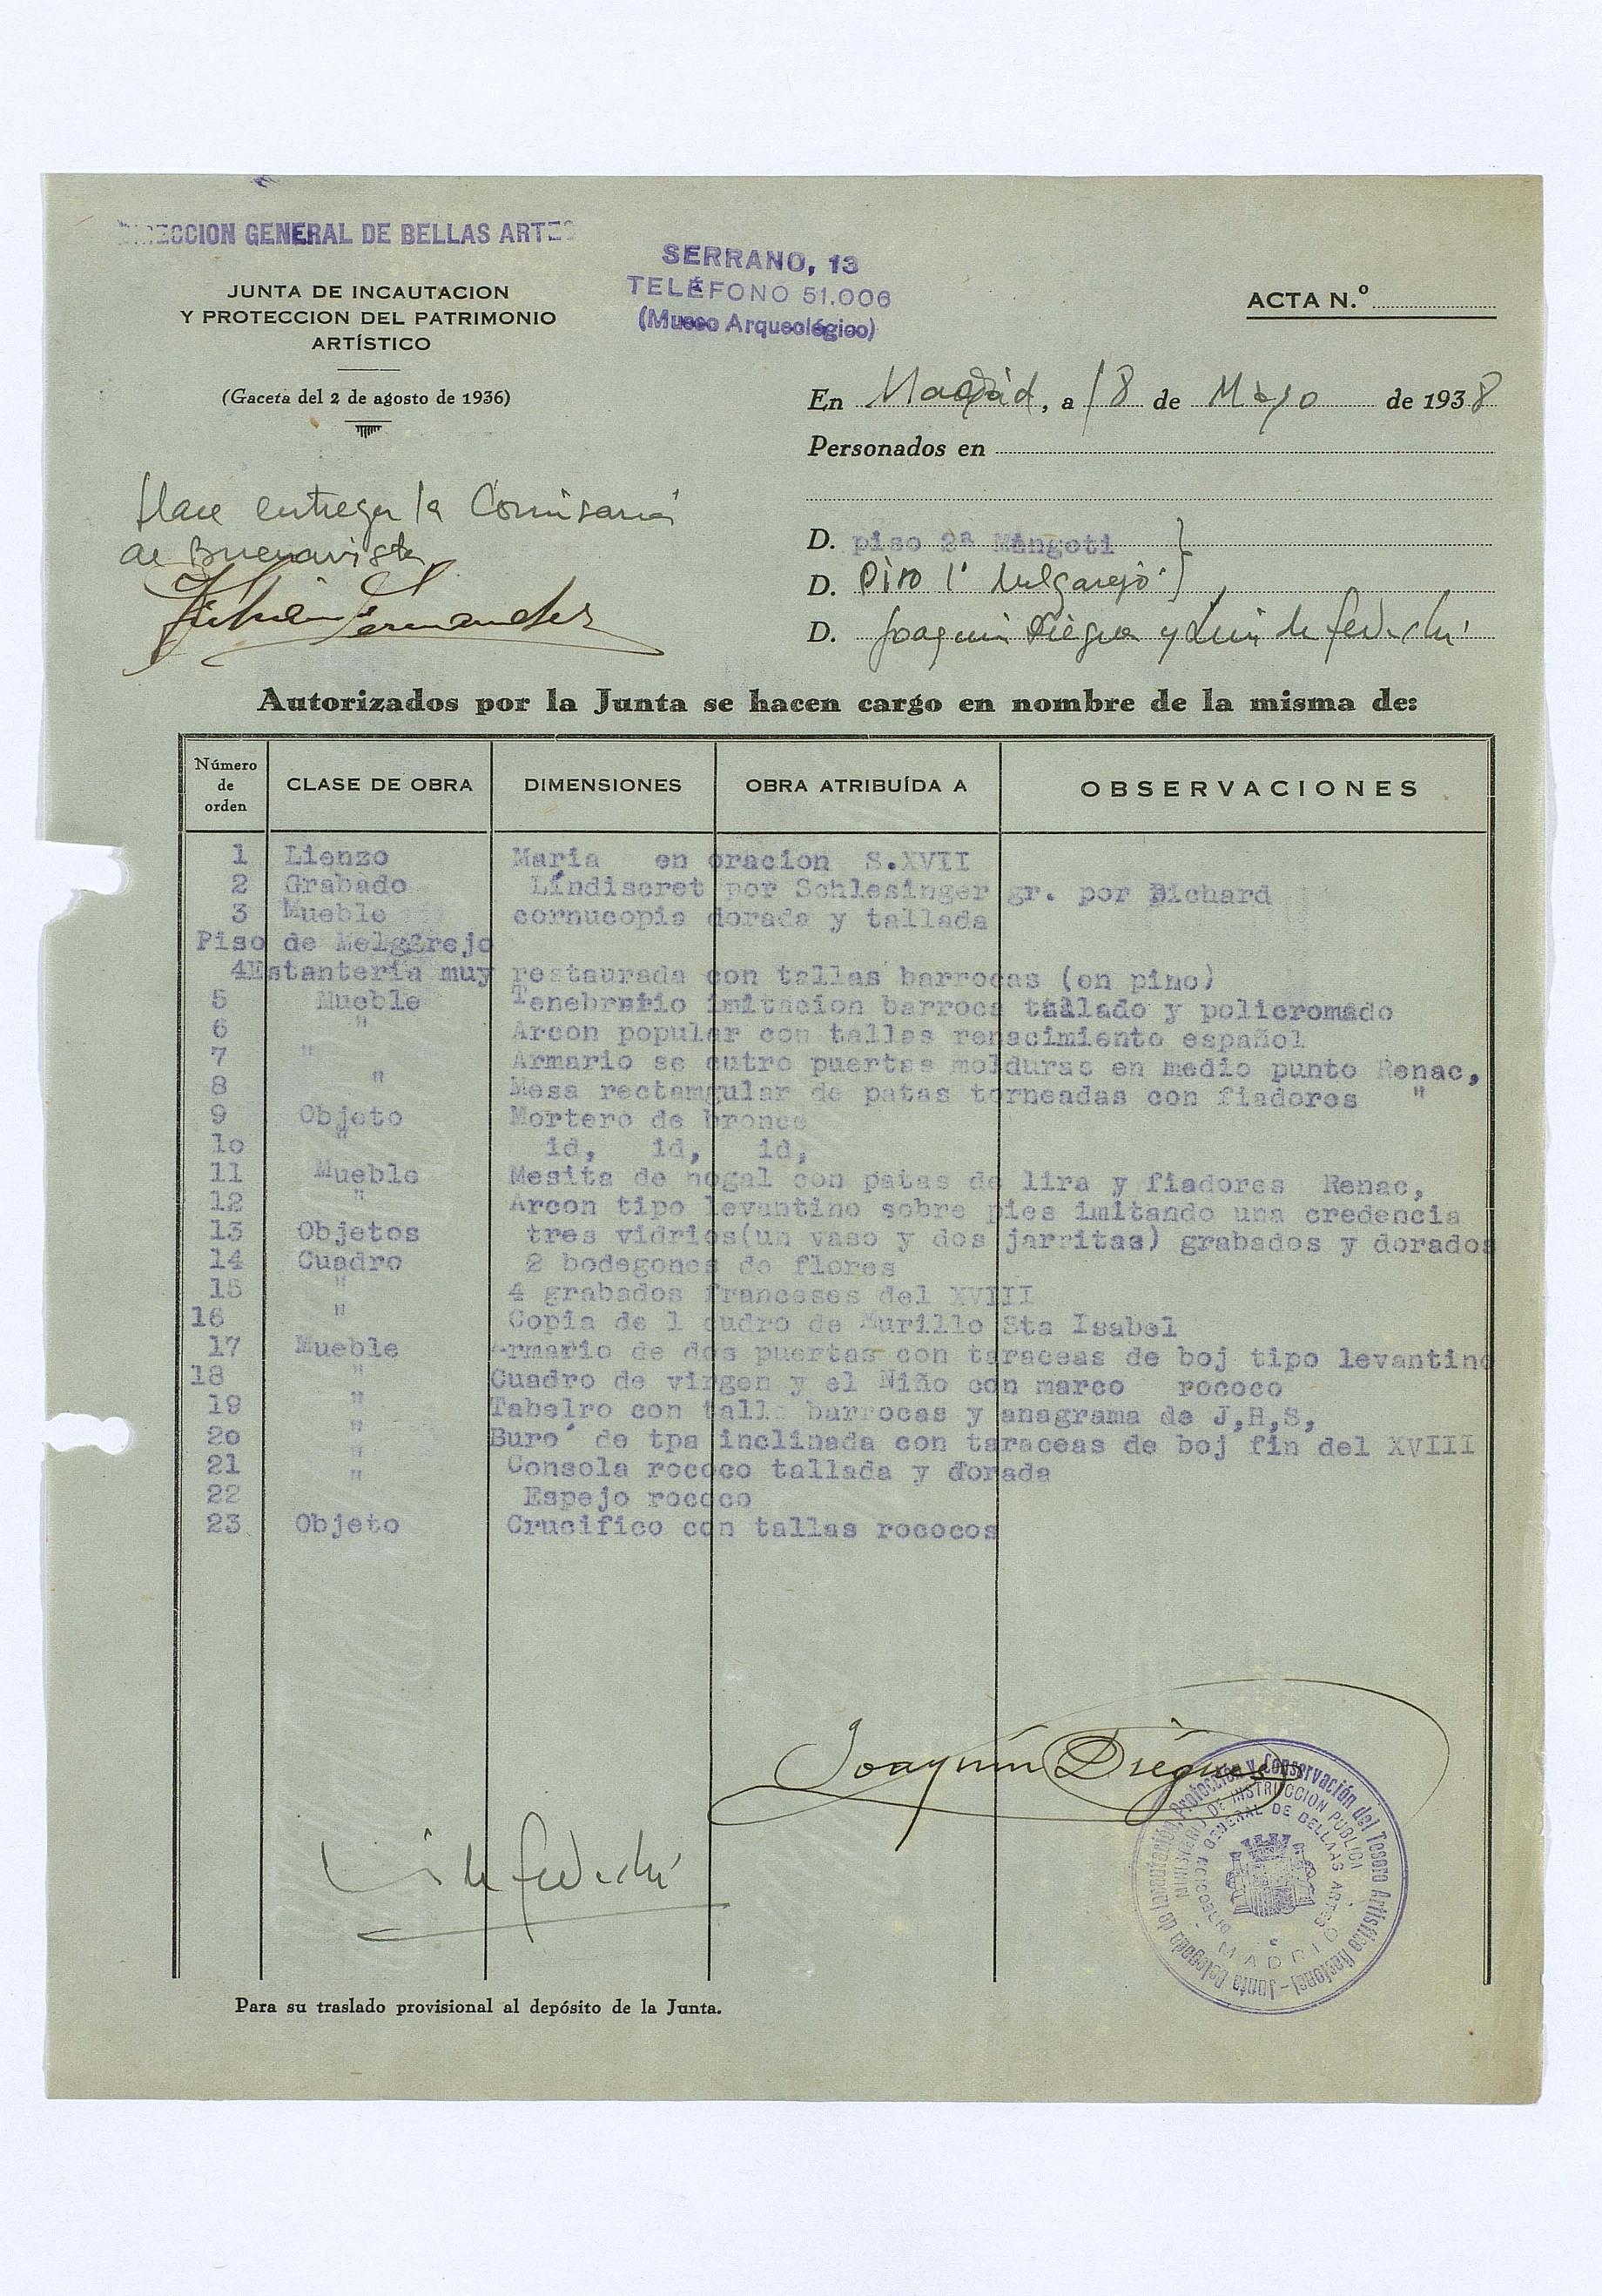 DIRECCION GENERAL DE BELLAS ARTES
JUNTA DE INCAUTACION
Y PROTECCION DEL PATRIMONIO
ARTÍSTICO
(Gaceta del 2 de agosto de 1936)
SERRANO, 13
TELÉFONO 51.006
(Museo Arqueológico)
ACTA N.º
En Madrid, a 18 de Mayo de 1938
Personados en
Hace entrega la Comisaria
de Buenavista
Julián Fernandez
D. piso 2ª Mingoti }
D. Piso 1º Melgarejo }
D. Joaquin Diégues y Luis de Feduchi
Autorizados por la Junta se hacen cargo en nombre de la misma de:
Número de orden CLASE DE OBRA DIMENSIONES OBRA ATRIBUÍDA A OBSERVACIONES
1 Lienzo Maria en oracion S.XVII
2 Grabado Líndiscret por Schlesinger gr. por Bichard
3 Mueble cornucopia dorada y tallada
Piso de Melgarejo
4 Estantería muy restaurada con tallas barrocas (en pino)
5 Mueble Tenebrario imitacion barroca tallado y policromado
6 " Arcon popular con tallas renacimiento español
7 " Armario se cutro puertas molduras en medio punto Renac,
8 " Mesa rectamgular de patas torneadas con fiadores "
9 Objeto Mortero de bronce
10 " id, id, id,
11 Mueble Mesita de nogal con patas de lira y fiadores Renac,
12 " Arcon tipo levantino sobre pies imitando una credencia
13 Objetos tres vidrios(un vaso y dos jarritas) grabados y dorados
14 Cuadro 2 bodegones de flores
15 " 4 grabados franceses del XVIII
16 " Copia de l cudro de Murillo Sta Isabel
17 Mueble Armario de dos puertas con taraceas de boj tipo levantino
18 " Cuadro de virgen y el Niño con marco rococo
19 " Tabelro con talla barrocas y anagrama de J,H,S,
20 " Buro de tpa inclinada con taraceas de boj fin del XVIII
21 " Consola rococo tallada y dorada
22 " Espejo rococo
23 Objeto Crucifico con tallas rococos
Joaquin Diégues
Luis de Feduchi
Junta Delegada de Incautación, Protección y Conservación del Tesoro Artístico Nacional
MINISTERIO DE INSTRUCCION PUBLICA
DIRECCION GENERAL DE BELLAS ARTES
MADRID
Para su traslado provisional al depósito de la Junta.